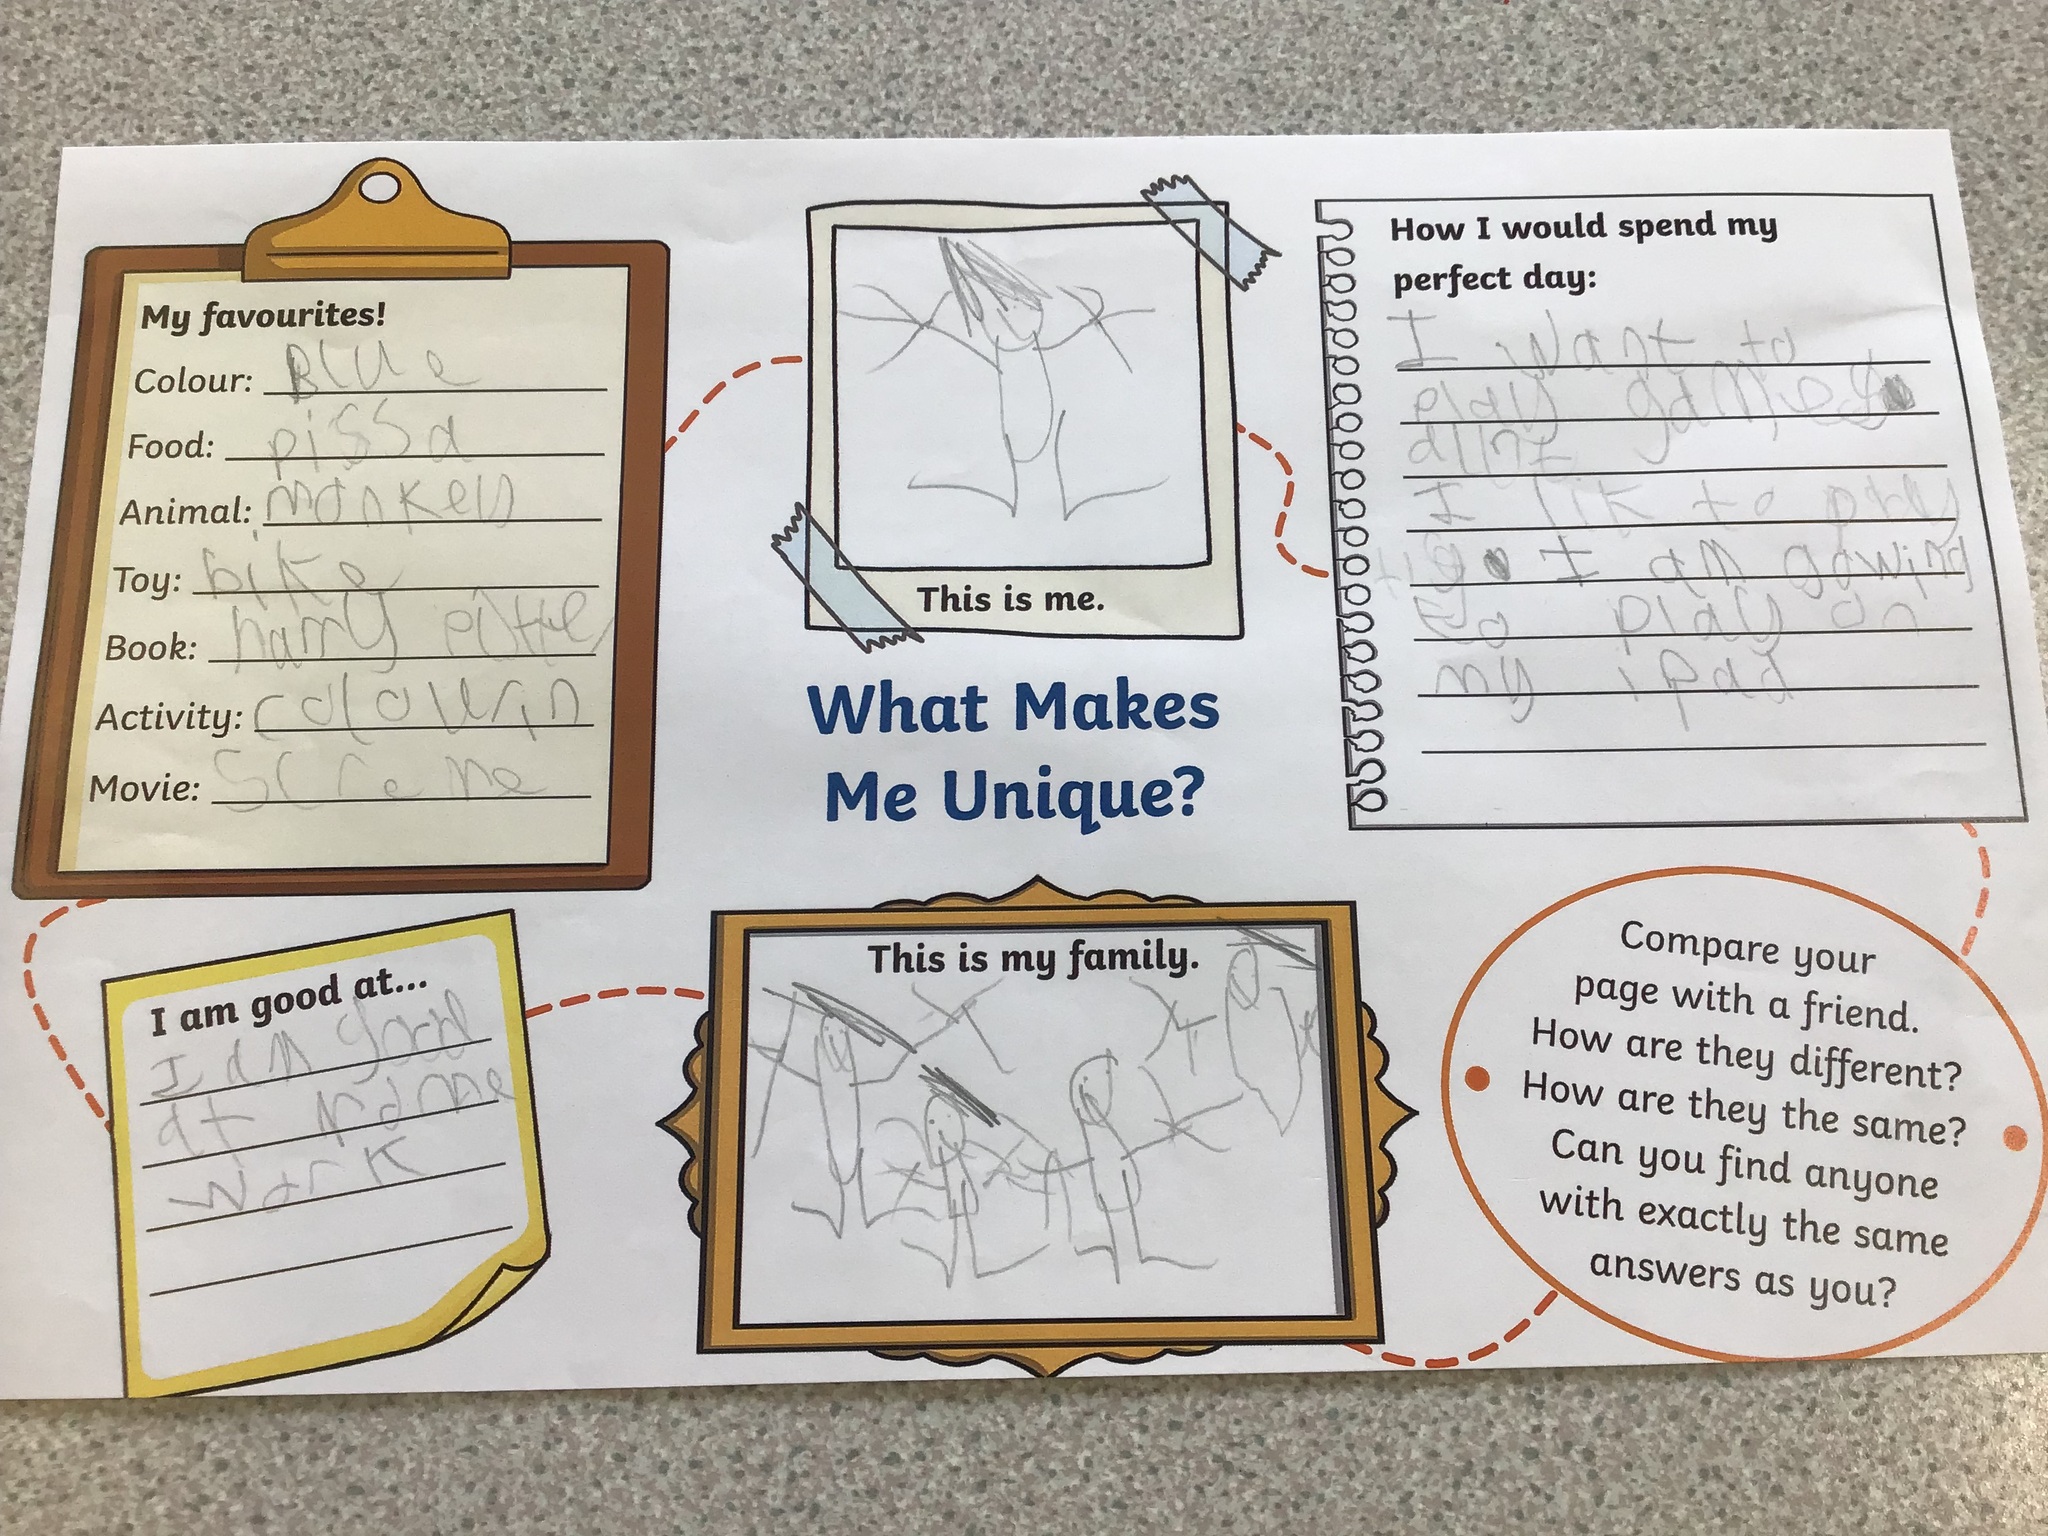 My favourites!
Colour: Blue
Food: pissa
Animal: monkey
Toy: bike
Book: harry
Activity: colourin
Movie: screme
This is me.
How I would spend my
perfect day:
I want to
play games
I lik to play
I am gowing
to play on
my ipad
What Makes
Me Unique?
I am good at...
I am good
at
work
This is my family.
Compare your
page with a friend.
How are they different?
How are they the same?
Can you find anyone
with exactly the same
answers as you?